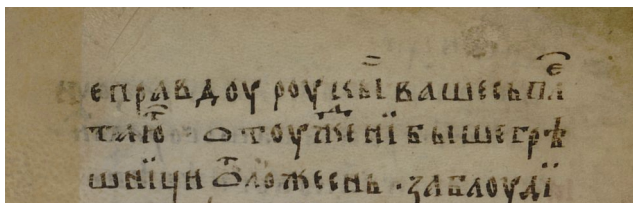 еправдоу роукы вашесьплⷷ
таюⷮ ѻтоужⷣенї бышегрѣ
шнїци ѿложеснь · заблоудї